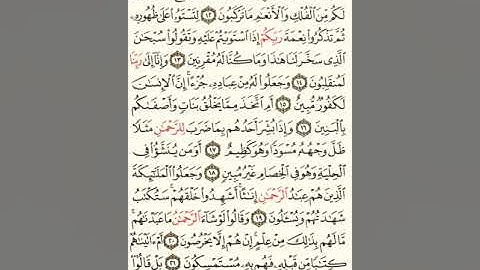 لَكُم مِّنَ ٱلْفُلْكِ وَٱلْأَنْعَٰمِ مَا تَرْكَبُونَ ١٢ لِتَسْتَوُۥا۟ عَلَىٰ ظُهُورِهِۦ
ثُمَّ تَذْكُرُوا۟ نِعْمَةَ رَبِّكُمْ إِذَا ٱسْتَوَيْتُمْ عَلَيْهِ وَتَقُولُوا۟ سُبْحَٰنَ
ٱلَّذِى سَخَّرَ لَنَا هَٰذَا وَمَا كُنَّا لَهُۥ مُقْرِنِينَ ١٣ وَإِنَّآ إِلَىٰ رَبِّنَا
لَمُنقَلِبُونَ ١٤ وَجَعَلُوا۟ لَهُۥ مِنْ عِبَادِهِۦ جُزْءًا ۚ إِنَّ ٱلْإِنسَٰنَ
لَكَفُورٌ مُّبِينٌ ١٥ أَمِ ٱتَّخَذَ مِمَّا يَخْلُقُ بَنَاتٍ وَأَصْفَىٰكُم
بِٱلْبَنِينَ ١٦ وَإِذَا بُشِّرَ أَحَدُهُم بِمَا ضَرَبَ لِلرَّحْمَٰنِ مَثَلًا
ظَلَّ وَجْهُهُۥ مُسْوَدًّا وَهُوَ كَظِيمٌ ١٧ أَوَمَن يُنَشَّؤُا۟ فِى
ٱلْحِلْيَةِ وَهُوَ فِى ٱلْخِصَامِ غَيْرُ مُبِينٍ ١٨ وَجَعَلُوا۟ ٱلْمَلَٰٓئِكَةَ
ٱلَّذِينَ هُمْ عِبَٰدُ ٱلرَّحْمَٰنِ إِنَٰثًا ۚ أَشَهِدُوا۟ خَلْقَهُمْ ۚ سَتُكْتَبُ
شَهَٰدَتُهُمْ وَيُسْـَٔلُونَ ١٩ وَقَالُوا۟ لَوْ شَآءَ ٱلرَّحْمَٰنُ مَا عَبَدْنَٰهُم ۗ
مَّا لَهُم بِذَٰلِكَ مِنْ عِلْمٍ ۖ إِنْ هُمْ إِلَّا يَخْرُصُونَ ٢٠ أَمْ ءَاتَيْنَٰهُمْ
كِتَٰبًا مِّن قَبْلِهِۦ فَهُم بِهِۦ مُسْتَمْسِكُونَ ٢١ بَلْ قَالُوٓا۟